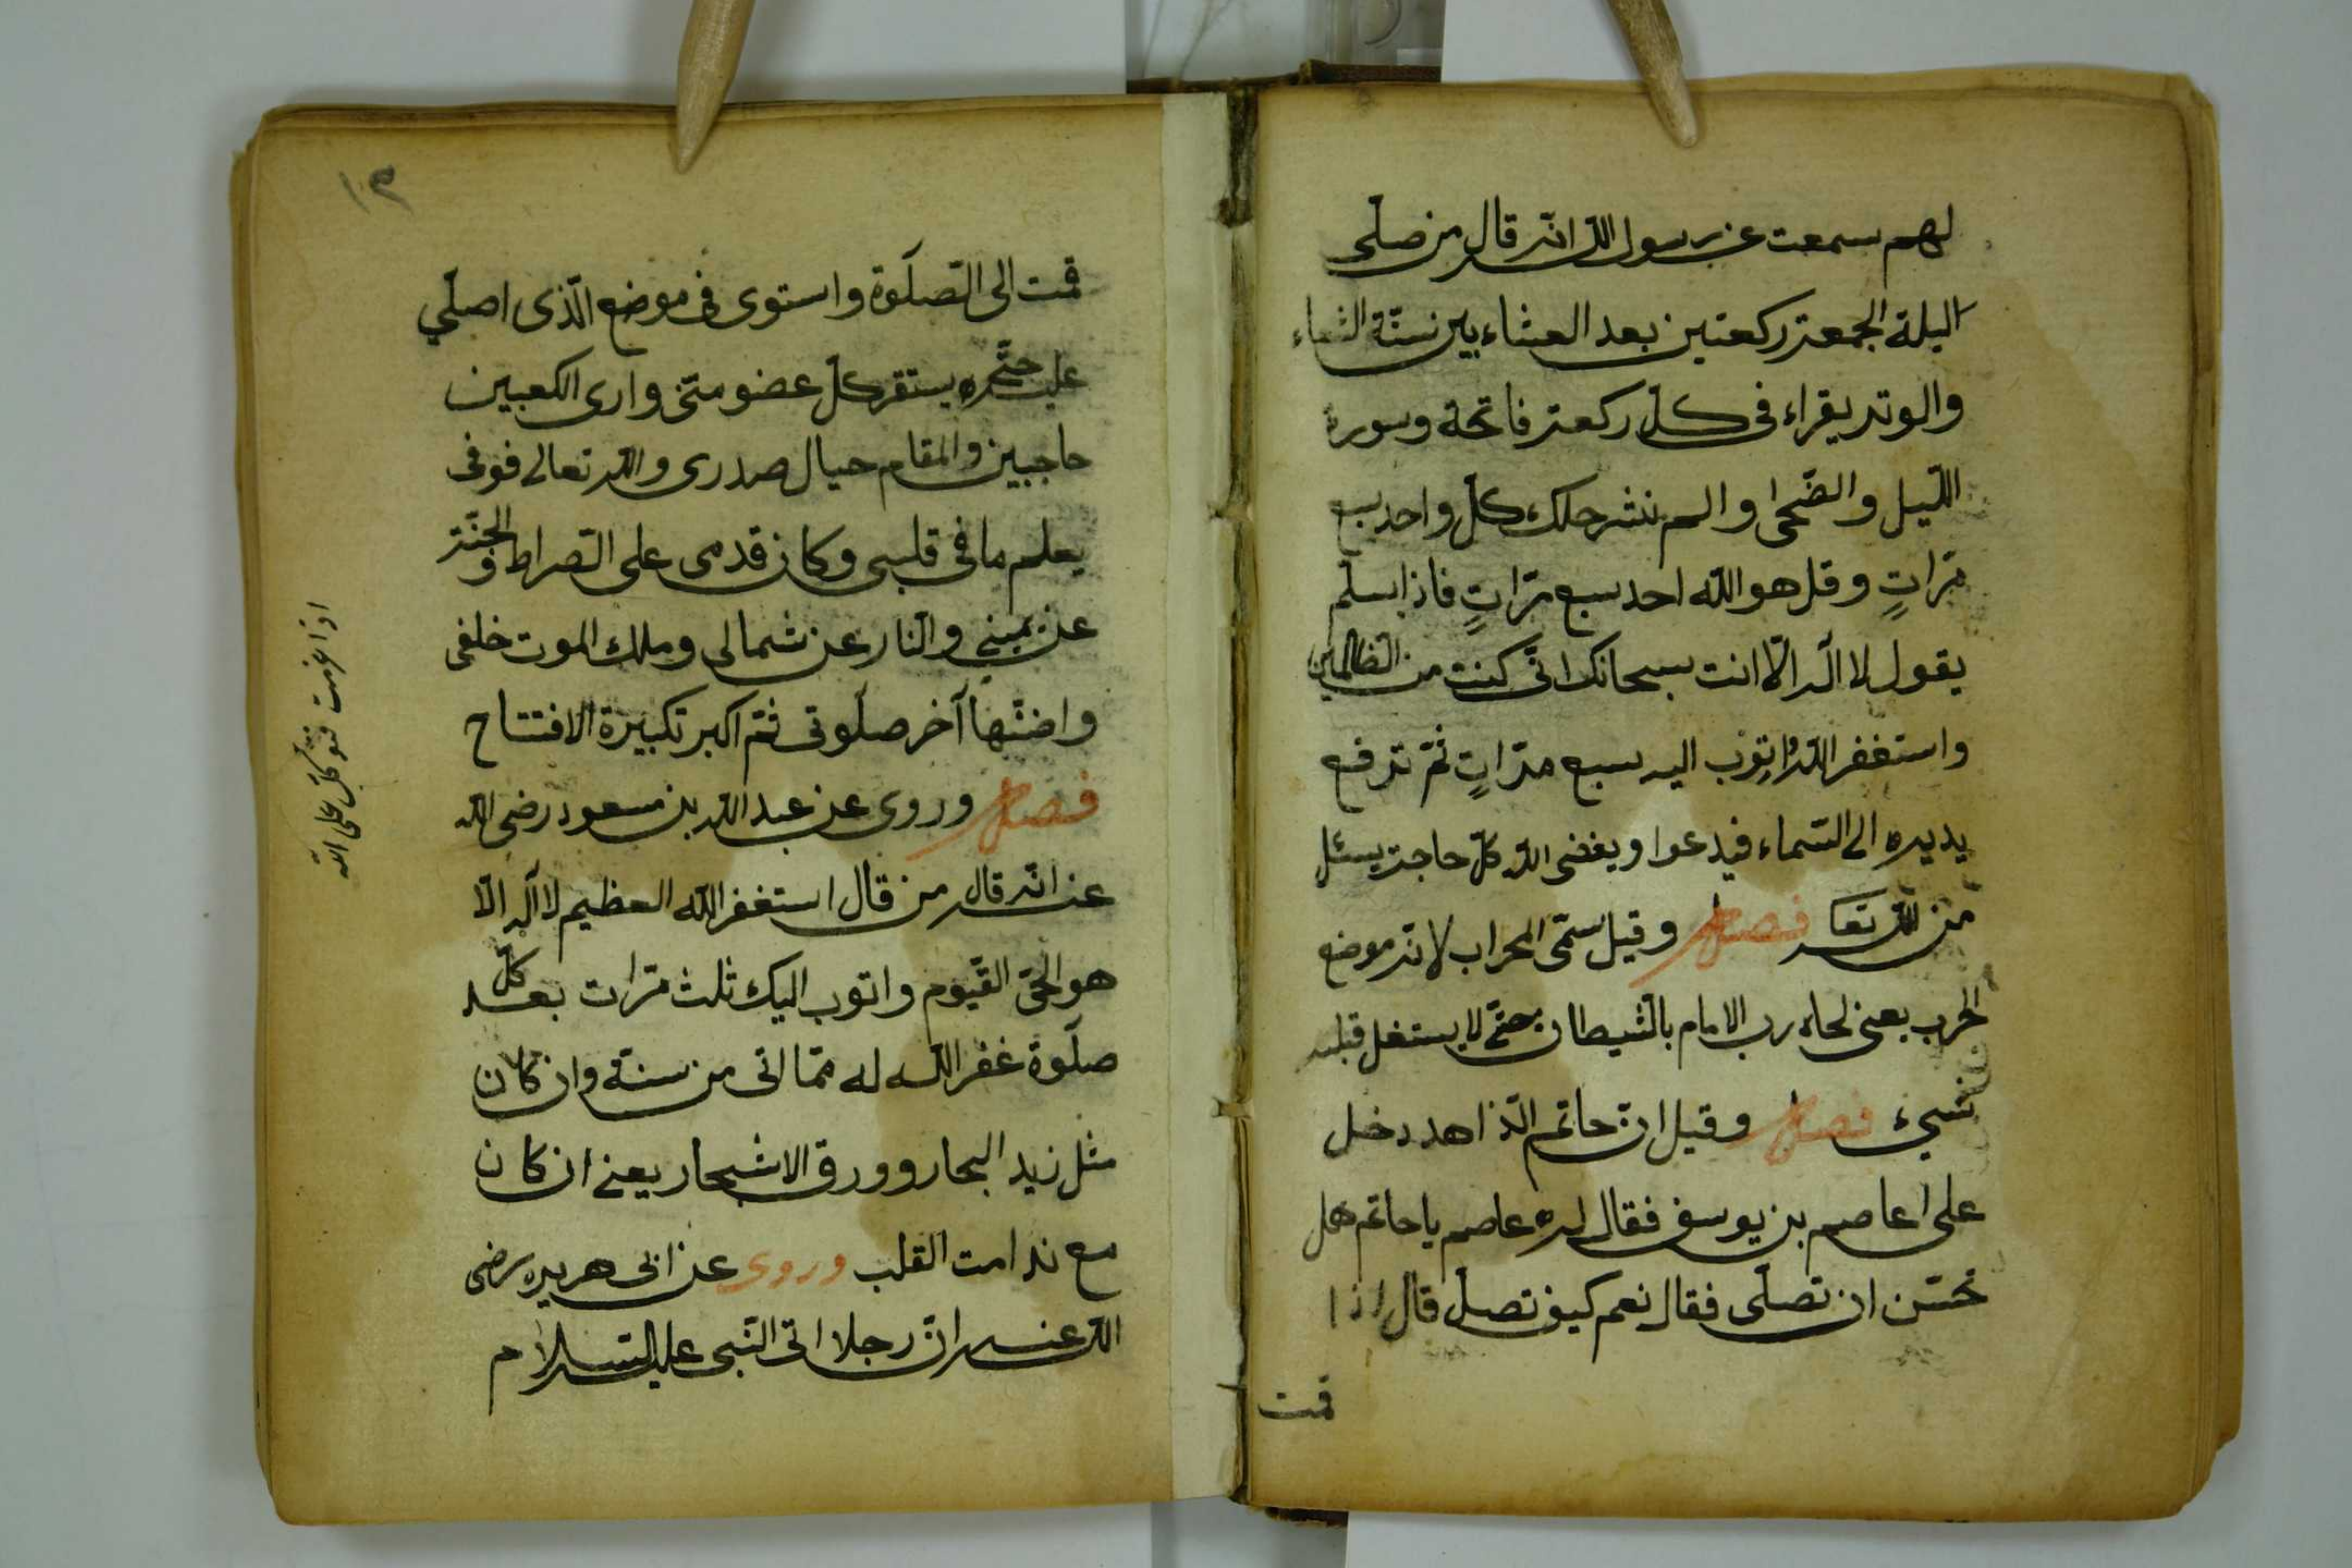 لهم سمعت عن رسول الله انه قال من صلّى
اليلة الجمعة ركعتين بعد العشاء بين سنّة العشاء
والوتر يقراء فى كلّ ركعة فاتحة وسورة
اللّيل والضّحى والم نشرح لك كلّ واحد سبع
مرّاتٍ وقل هو الله احد سبع مرّاتٍ فاذا سلّم
يقول لا اله الّا انت سبحانك انّى كنت من الظالمين
واستغفر الله واتوب اليه سبع مرّاتٍ ثمّ ترفع
يديه الى السّماء فيدعوا ويقضى الله كلّ حاجة يسئل
من الله تعا فصل وقيل سمّى المحراب لانّه موضع
الحرب يعنى لحاه رب الامام بالشيطان حتّى لا يستغل قبله
شىء فصل وقيل انّ حاتم الذاهد دخل
على اعاصم بن يوسف فقال له عاصم يا حاتم هل
تحسّن ان تصلّى فقال نعم كيف تصلّ قال اذا
قمت
١٢
قمت الى الصّلوة واستوى فى موضع الّذى اصلّي
عليه حتّى يستقر كلّ عضو منّى وارى الكعبين
حاجبين والمقام حيال صدرى والله تعالى فوقى
يعلم ما فى قلبى وكان قدمى على الصّراط والجنّة
عن يمينى والنّار عن شمالى وملك الموت خلفى
واضنّها آخر صلوتى ثمّ اكبر تكبيرة الافتتاح
فصل وروى عن عبد الله بن مسعود رضى الله
عنه انّه قال من قال استغفر الله العظيم لا اله الّا
هو الحىّ القيّوم واتوب اليك ثلث مرّات بعد كلّ
صلوة غفر الله له ممّا اتى من سنة وان كان
مثل زبد البحار وورق الاشجار يعنى ان كان
مع ندامت القلب وروى عن ابى هريره رضى
الله عنه انّ رجلا اتى النّبى عليه السّلام
اذا عزمت فتوكّل على الله